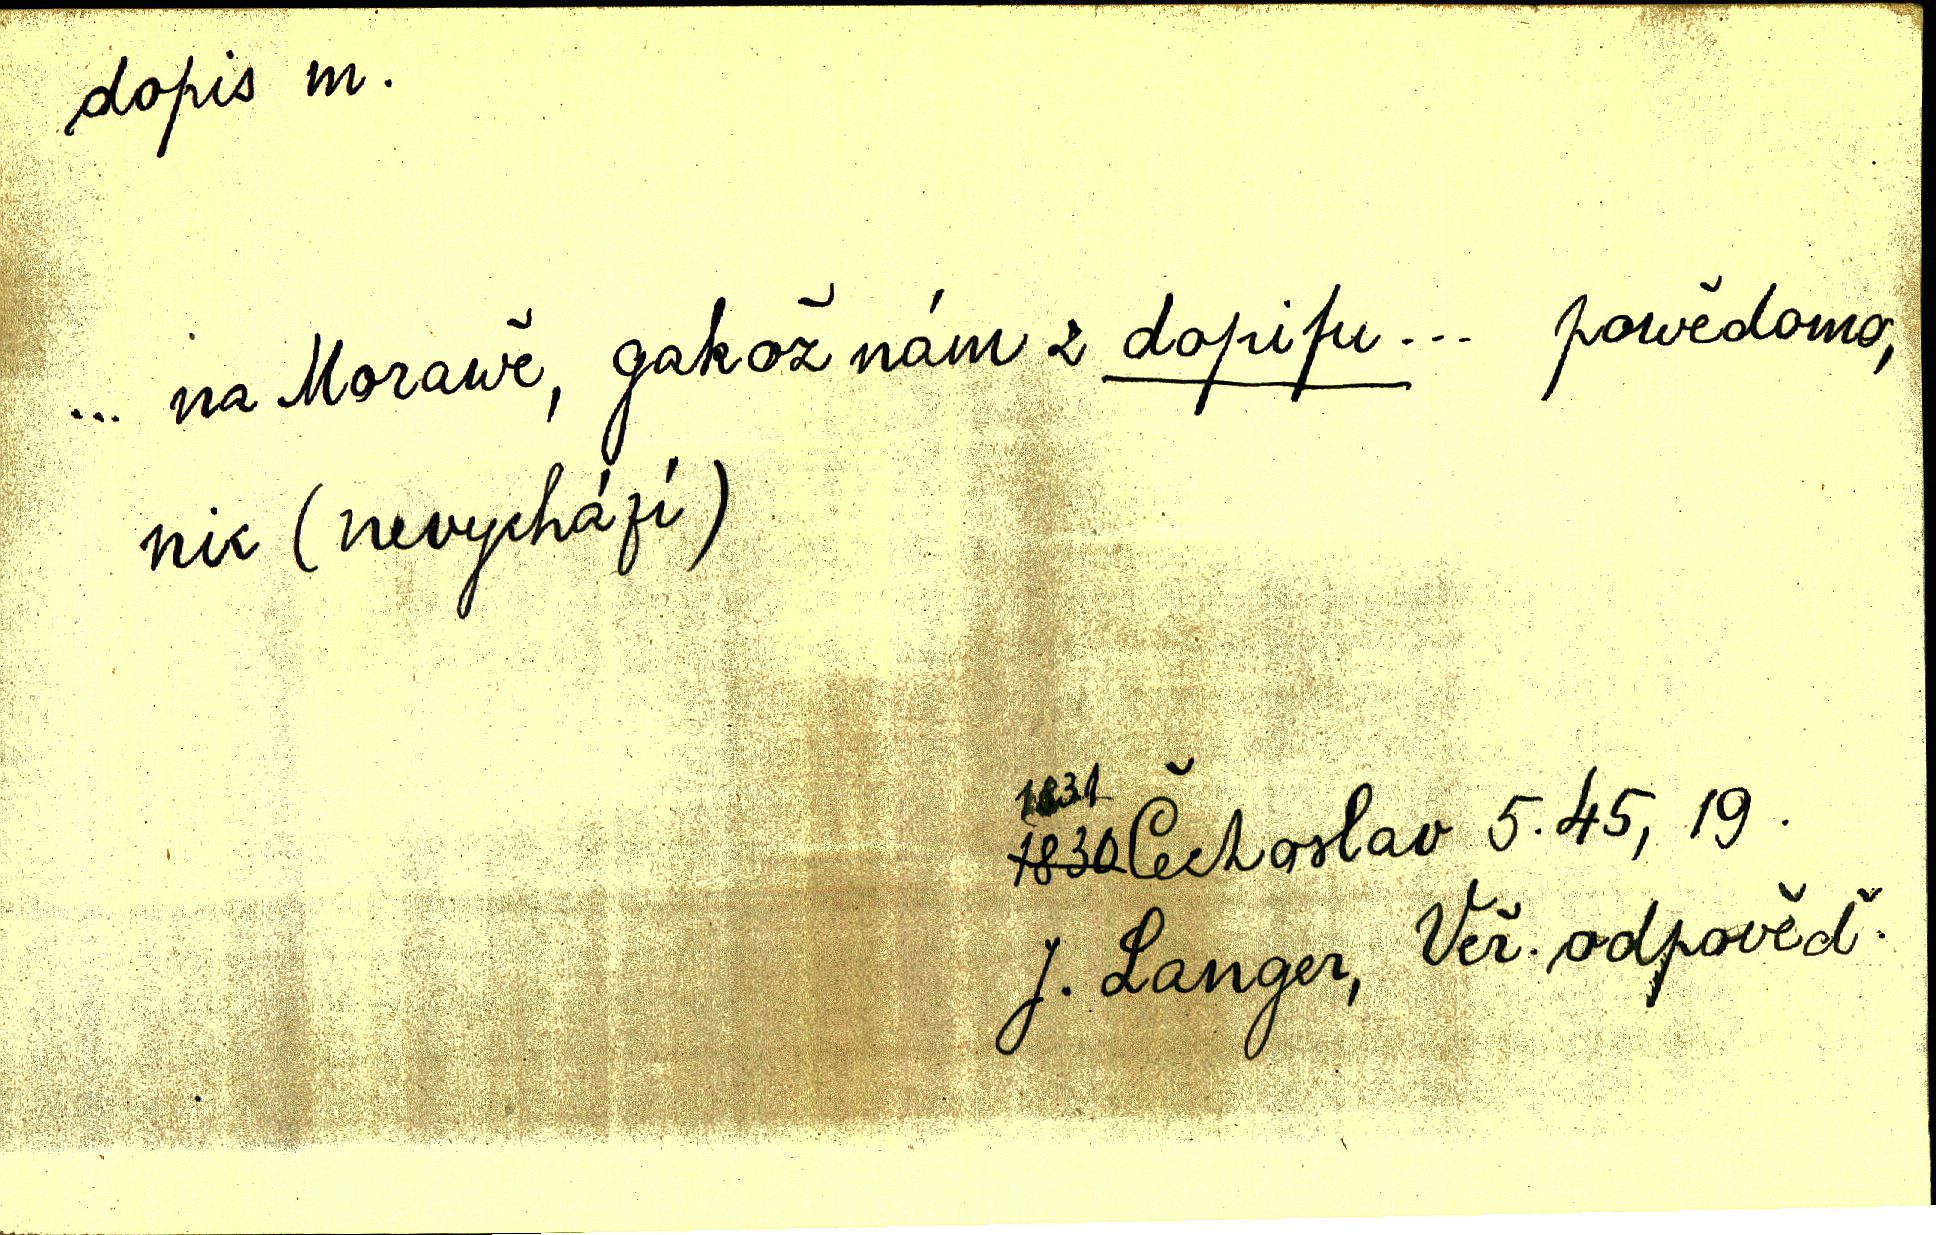 dopis m.
... na Morawě, gakož nám z dopiſu ... powědomo,
nic (nevycháſí)
1831
1830 Čechoslav 5.45, 19.
J. Langer, Veř. odpověď.